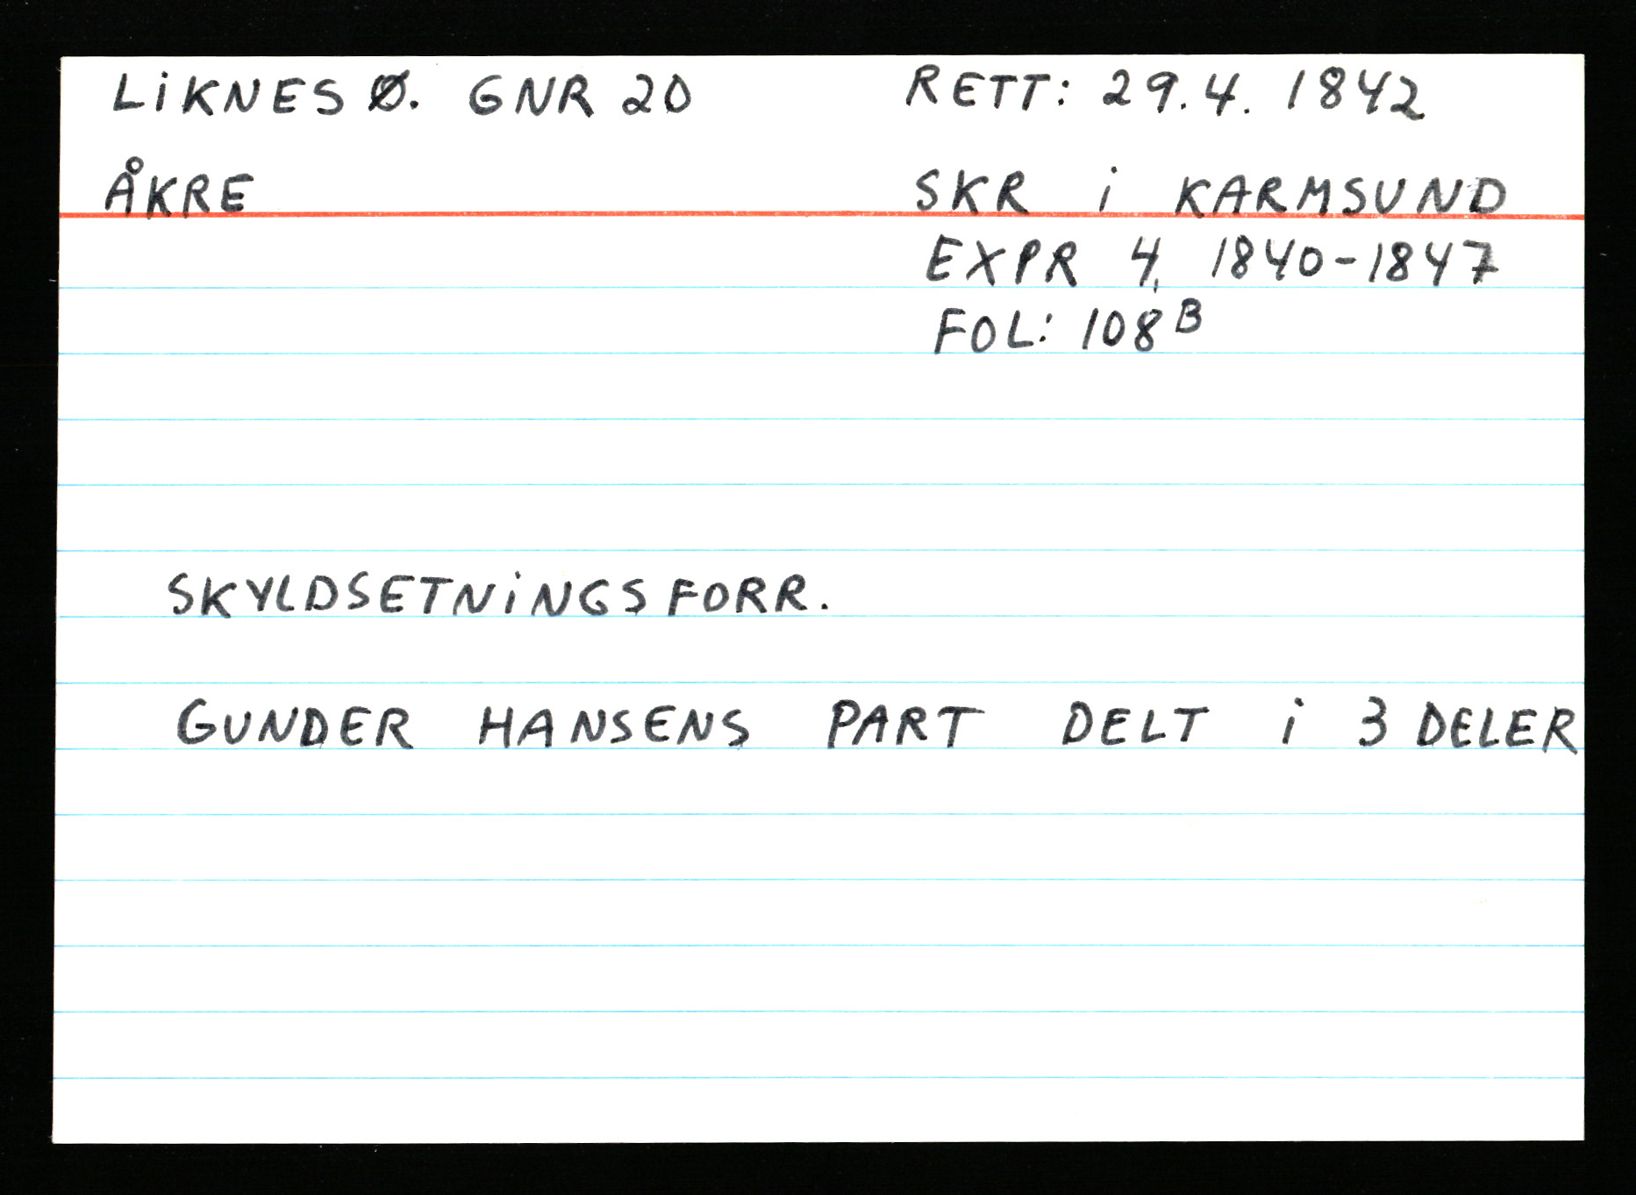 LIKNES Ø. GNR 20
RETT: 29.4. 1842
ÅKRE
SKR i KARMSUND
EXPR 4, 1840-1847
FOL: 108 B
SKYLDSETNINGSFORR.
GUNDER HANSENS PART DELT i 3 DELER